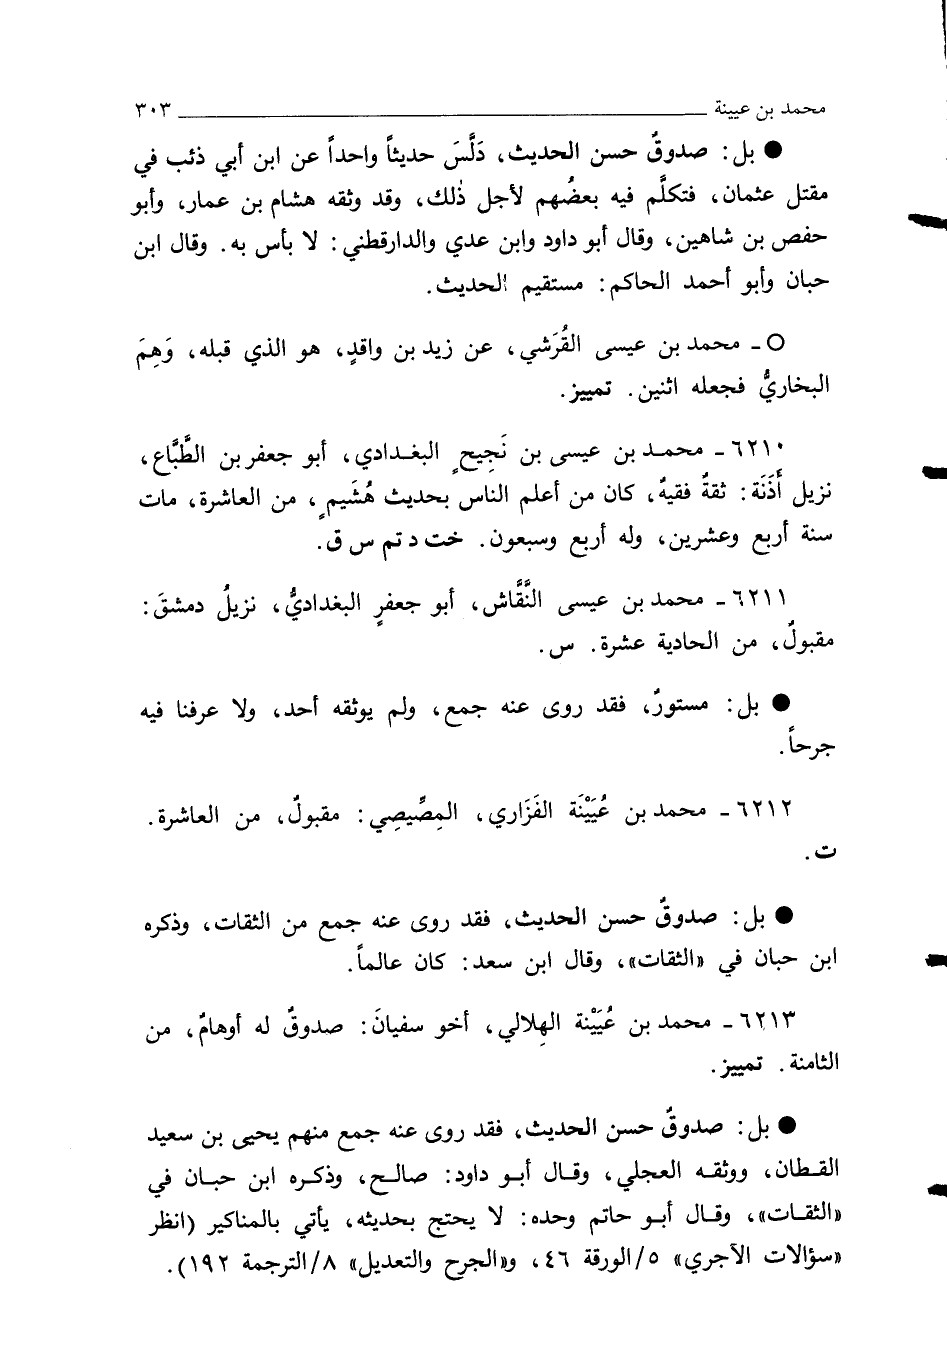 محمد بن عيينة ــــــ ٣٠٣
● بل: صدوقٌ حسن الحديث، دَلَّسَ حديثاً واحداً عن ابن أبي ذئب في
مقتل عثمان، فتكلَّم فيه بعضُهم لأجل ذٰلك، وقد وثقه هشام بن عمار، وأبو
حفص بن شاهين، وقال أبو داود وابن عدي والدارقطني: لا بأس به. وقال ابن
حبان وأبو أحمد الحاكم: مستقيم الحديث.
○ ـ محمد بن عيسى القُرَشي، عن زيد بن واقدٍ، هو الذي قبله، وَهِمَ
البخاريُّ فجعله اثنين. تمييز.
٦٢١٠ ـ محمد بن عيسى بن نَجِيحٍ البغدادي، أبو جعفر بن الطَّبَّاع،
نزيل أَذَنَة: ثقةٌ فقيهٌ، كان من أعلم الناس بحديث هُشَيمٍ، من العاشرة، مات
سنة أربع وعشرين، وله أربع وسبعون. خت د تم س ق.
٦٢١١ ـ محمد بن عيسى النَّقَّاش، أبو جعفرٍ البغداديُّ، نزيلُ دمشقَ:
مقبولٌ، من الحادية عشرة. س.
● بل: مستورٌ، فقد روى عنه جمع، ولم يوثقه أحد، ولا عرفنا فيه
جرحاً.
٦٢١٢ ـ محمد بن عُيَيْنَة الفَزَاري، المِصِّيصِي: مقبولٌ، من العاشرة.
ت.
● بل: صدوقٌ حسن الحديث، فقد روى عنه جمع من الثقات، وذكره
ابن حبان في «الثقات»، وقال ابن سعد: كان عالماً.
٦٢١٣ ـ محمد بن عُيَيْنة الهِلالي، أخو سفيانَ: صدوقٌ له أوهامٌ، من
الثامنة. تمييز.
● بل: صدوقٌ حسن الحديث، فقد روى عنه جمع منهم يحيى بن سعيد
القطان، ووثقه العجلي، وقال أبو داود: صالح، وذكره ابن حبان في
«الثقات»، وقال أبو حاتم وحده: لا يحتج بحديثه، يأتي بالمناكير (انظر
«سؤالات الآجري» ٥/الورقة ٤٦، و«الجرح والتعديل» ٨/الترجمة ١٩٢).